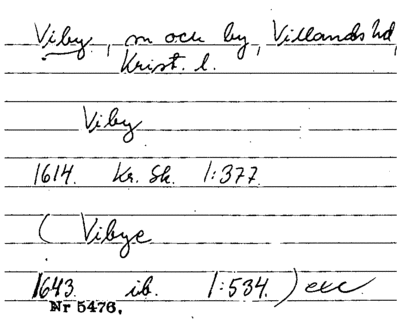 Viby, sn och by, Villands hd,
Krist. l.
Viby
1614. Kr. Sk. 1:377
( Vibye
1643. ib. 1:534. ) exc.
Nr 5476.